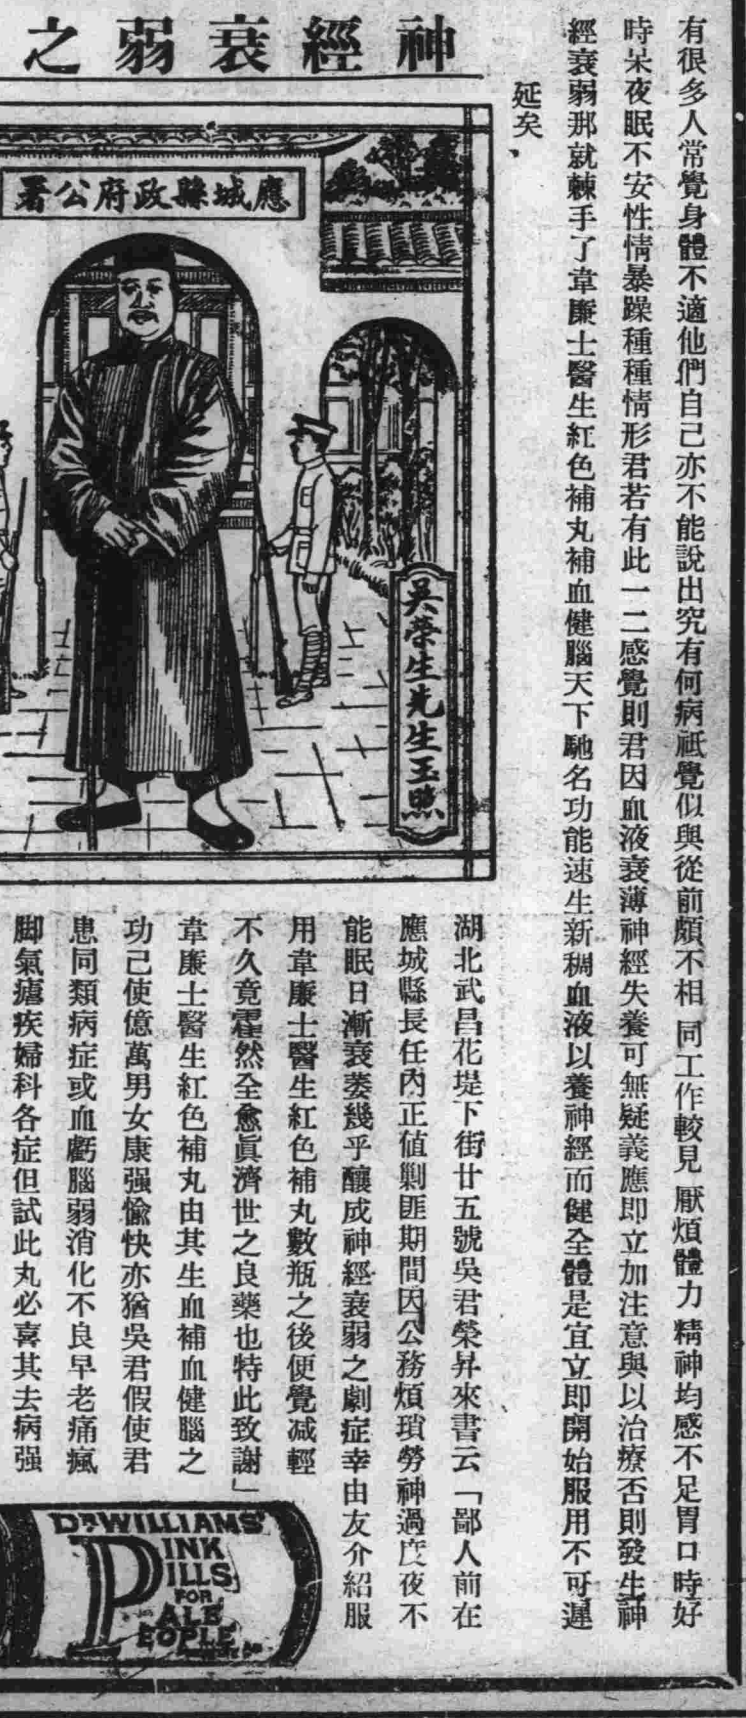 神經衰弱之
有很多人常覺身體不適他們自己亦不能說出究有何病祇覺似與從前頗不相同工作較見厭煩體力精神均感不足胃口時好
時呆夜眠不安性情暴躁種種情形君若有此一二感覺則君因血液衰薄神經失養可無疑義應即立加注意與以治療否則發生神
經衰弱那就棘手了韋廉士醫生紅色補丸補血健腦天下馳名功能速生新稠血液以養神經而健全體是宜立即開始服用不可遲
延矣、
應城縣政府公署
吳榮生先生玉照
湖北武昌花堤下街廿五號吳君榮昇來書云「鄙人前在
應城縣長任內正值剿匪期間因公務煩瑣勞神過度夜不
能眠日漸衰萎幾乎釀成神經衰弱之劇症幸由友介紹服
用韋廉士醫生紅色補丸數瓶之後便覺減輕
不久竟霍然全愈眞濟世之良藥也特此致謝」
韋廉士醫生紅色補丸由其生血補血健腦之
功己使億萬男女康强愉快亦猶吳君假使君
患同類病症或血虧腦弱消化不良早老痛瘋
脚氣瘧疾婦科各症但試此丸必喜其去病强
DR WILLIAMS'
PINK
PILLS
FOR
PALE
PEOPLE